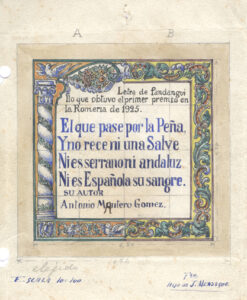 A B
Letra de Fandangui
llo que obtuvo el primer premio en
la Romeria de 1925.
El que pase por la Peña,
Y no rece ni una Salve
Ni es serrano ni andaluz
Ni es Española su sangre.
SU AUTOR
Antonio Mantero Gomez.
elegido
Eª ESCALA 10:100